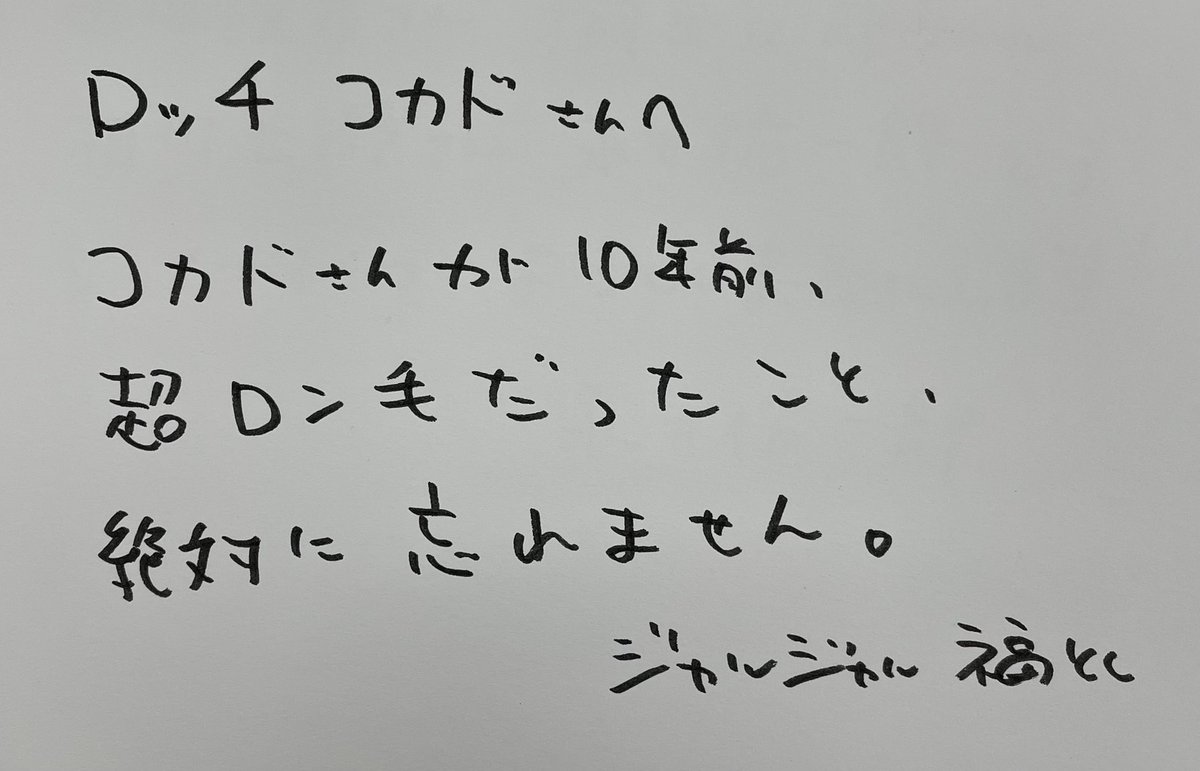 ロッチ コカドさんへ
コカドさんが10年前、
超ロン毛だったこと、
絶対に忘れません。
ジャルジャル 福とく